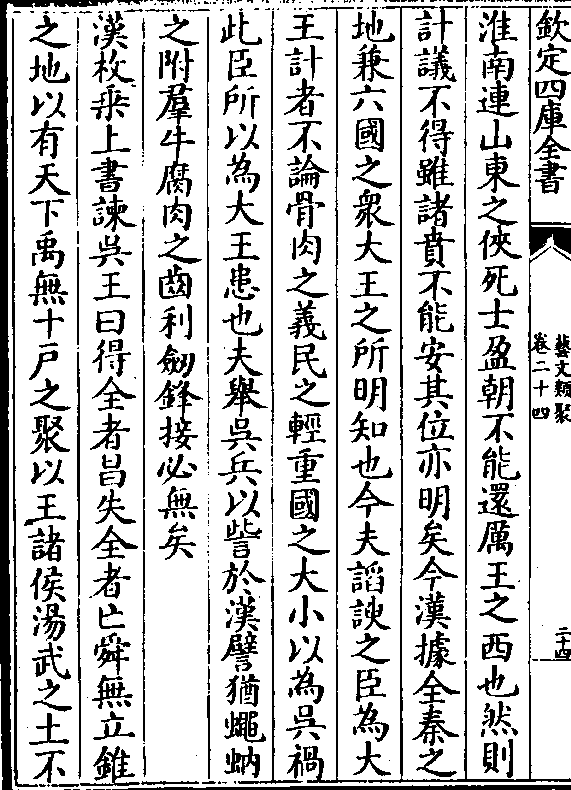 欽定四庫全書
藝文類聚
卷二十四
二十四
淮南連山東之俠死士盈朝不能還厲王之西也然則
計議不得雖諸賁不能安其位亦明矣今漢據全秦之
地兼六國之衆大王之所明知也今夫謟諛之臣為大
王計者不論骨肉之義民之輕重國之大小以為吳禍
此臣所以為大王患也夫舉吳兵以訾於漢譬猶蠅蚋
之附羣牛腐肉之齒利劔鋒接必無矣
漢枚乗上書諫吳王曰得全者昌失全者亡舜無立錐
之地以有天下禹無十戶之聚以王諸侯湯武之土不